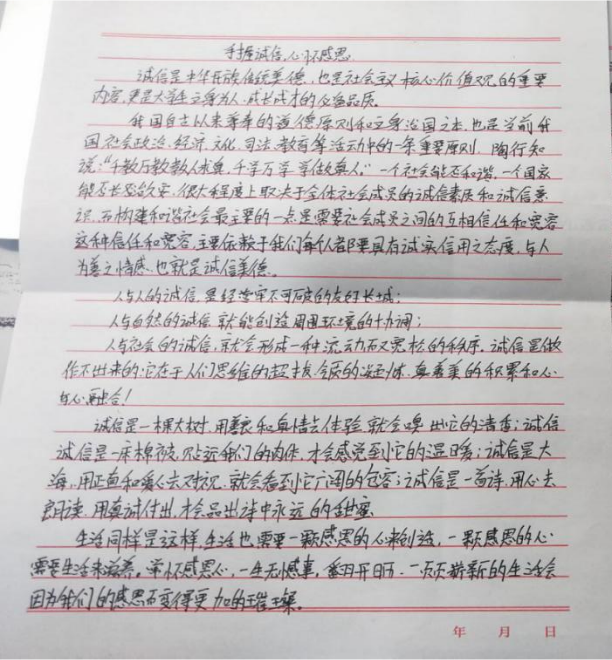 手握诚信,心怀感恩
诚信是中华民族传统美德,也是社会主义核心价值观的重要
内容,更是大学生立身为人,成长成才的必备品质。
我国自古以来尊奉的道德原则和立身治国之本,也是当前我
国社会政治、经济、文化、司法、教育等活动中的一条重要原则。陶行知
说:“千教万教教人求真,千学万学学做真人。”一个社会能否和谐,一个国家
能否长治久安,很大程度上取决于全体社会成员的诚信素质和诚信意
识。而构建和谐社会最主要的一点是需要社会成员之间的互相信任和宽容
这种信任和宽容,主要依赖于我们每个人都要具有诚实信用之态度,与人
为善之情感,也就是诚信美德。
人与人的诚信,是经营牢不可破的友好长城;
人与自然的诚信,就能创造周围环境的协调;
人与社会的诚信,就会形成一种流动而又宽松的秩序。诚信是做
作不出来的;它在于人们思维的超拔,气质的淡, 真善美的积累和心
与心融合!
诚信是一棵大树,用善和真情去体验,就会嗅出它的清香;诚信
诚信是一床棉被,贴近我们的肉体,才会感觉到它的温暖;诚信是大
海,用正直和爱人去对视,就会看到它广阔的包容;诚信是一首诗,用心去
朗读,用真诚付出,才会品出诗中永远的甜蜜。
生活同样是这样,生活也需要一颗感恩的心来创造,一颗感恩的心
需要生活来滋养。常怀感恩心,一生无憾事。翻开日历,一页页崭新的生活会
因为我们的感恩而变得更加的璀璨。
年 月 日